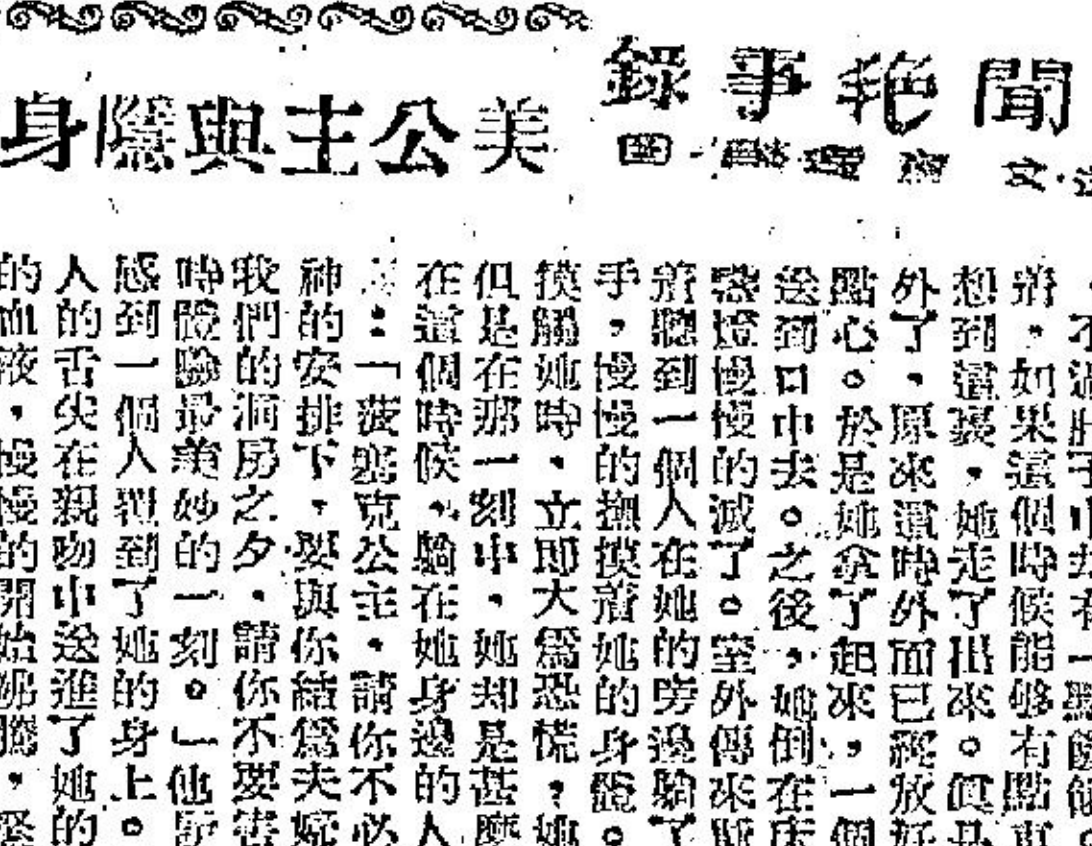 聞艳事錄
美公主與隱身
不
着，如果這個時候能够有點東
想到這裏，她走了出來。眞是
外了，原來這時外面已經放好
點心。於是她拿了起來，一個
送到口中去。之後，她倒在床
燈慢慢的滅了。室外傳來
着聽到一個人在她的旁邊躺了
手，慢慢的撫摸着她的身體。
摸觸她時，立即大爲恐慌，她
但是在那一刻中，她却是甚麼
在這個時候，躺在她身邊的人
：「菠塞克公主，請你不必
神的安排下，要與你結爲夫婦
我們的洞房之夕，請你不要害
時體驗最美妙的一刻。」他
感到一個人到了她的身上。
人的舌尖在親吻中送進了她的
的血液，慢慢的開始沸騰，